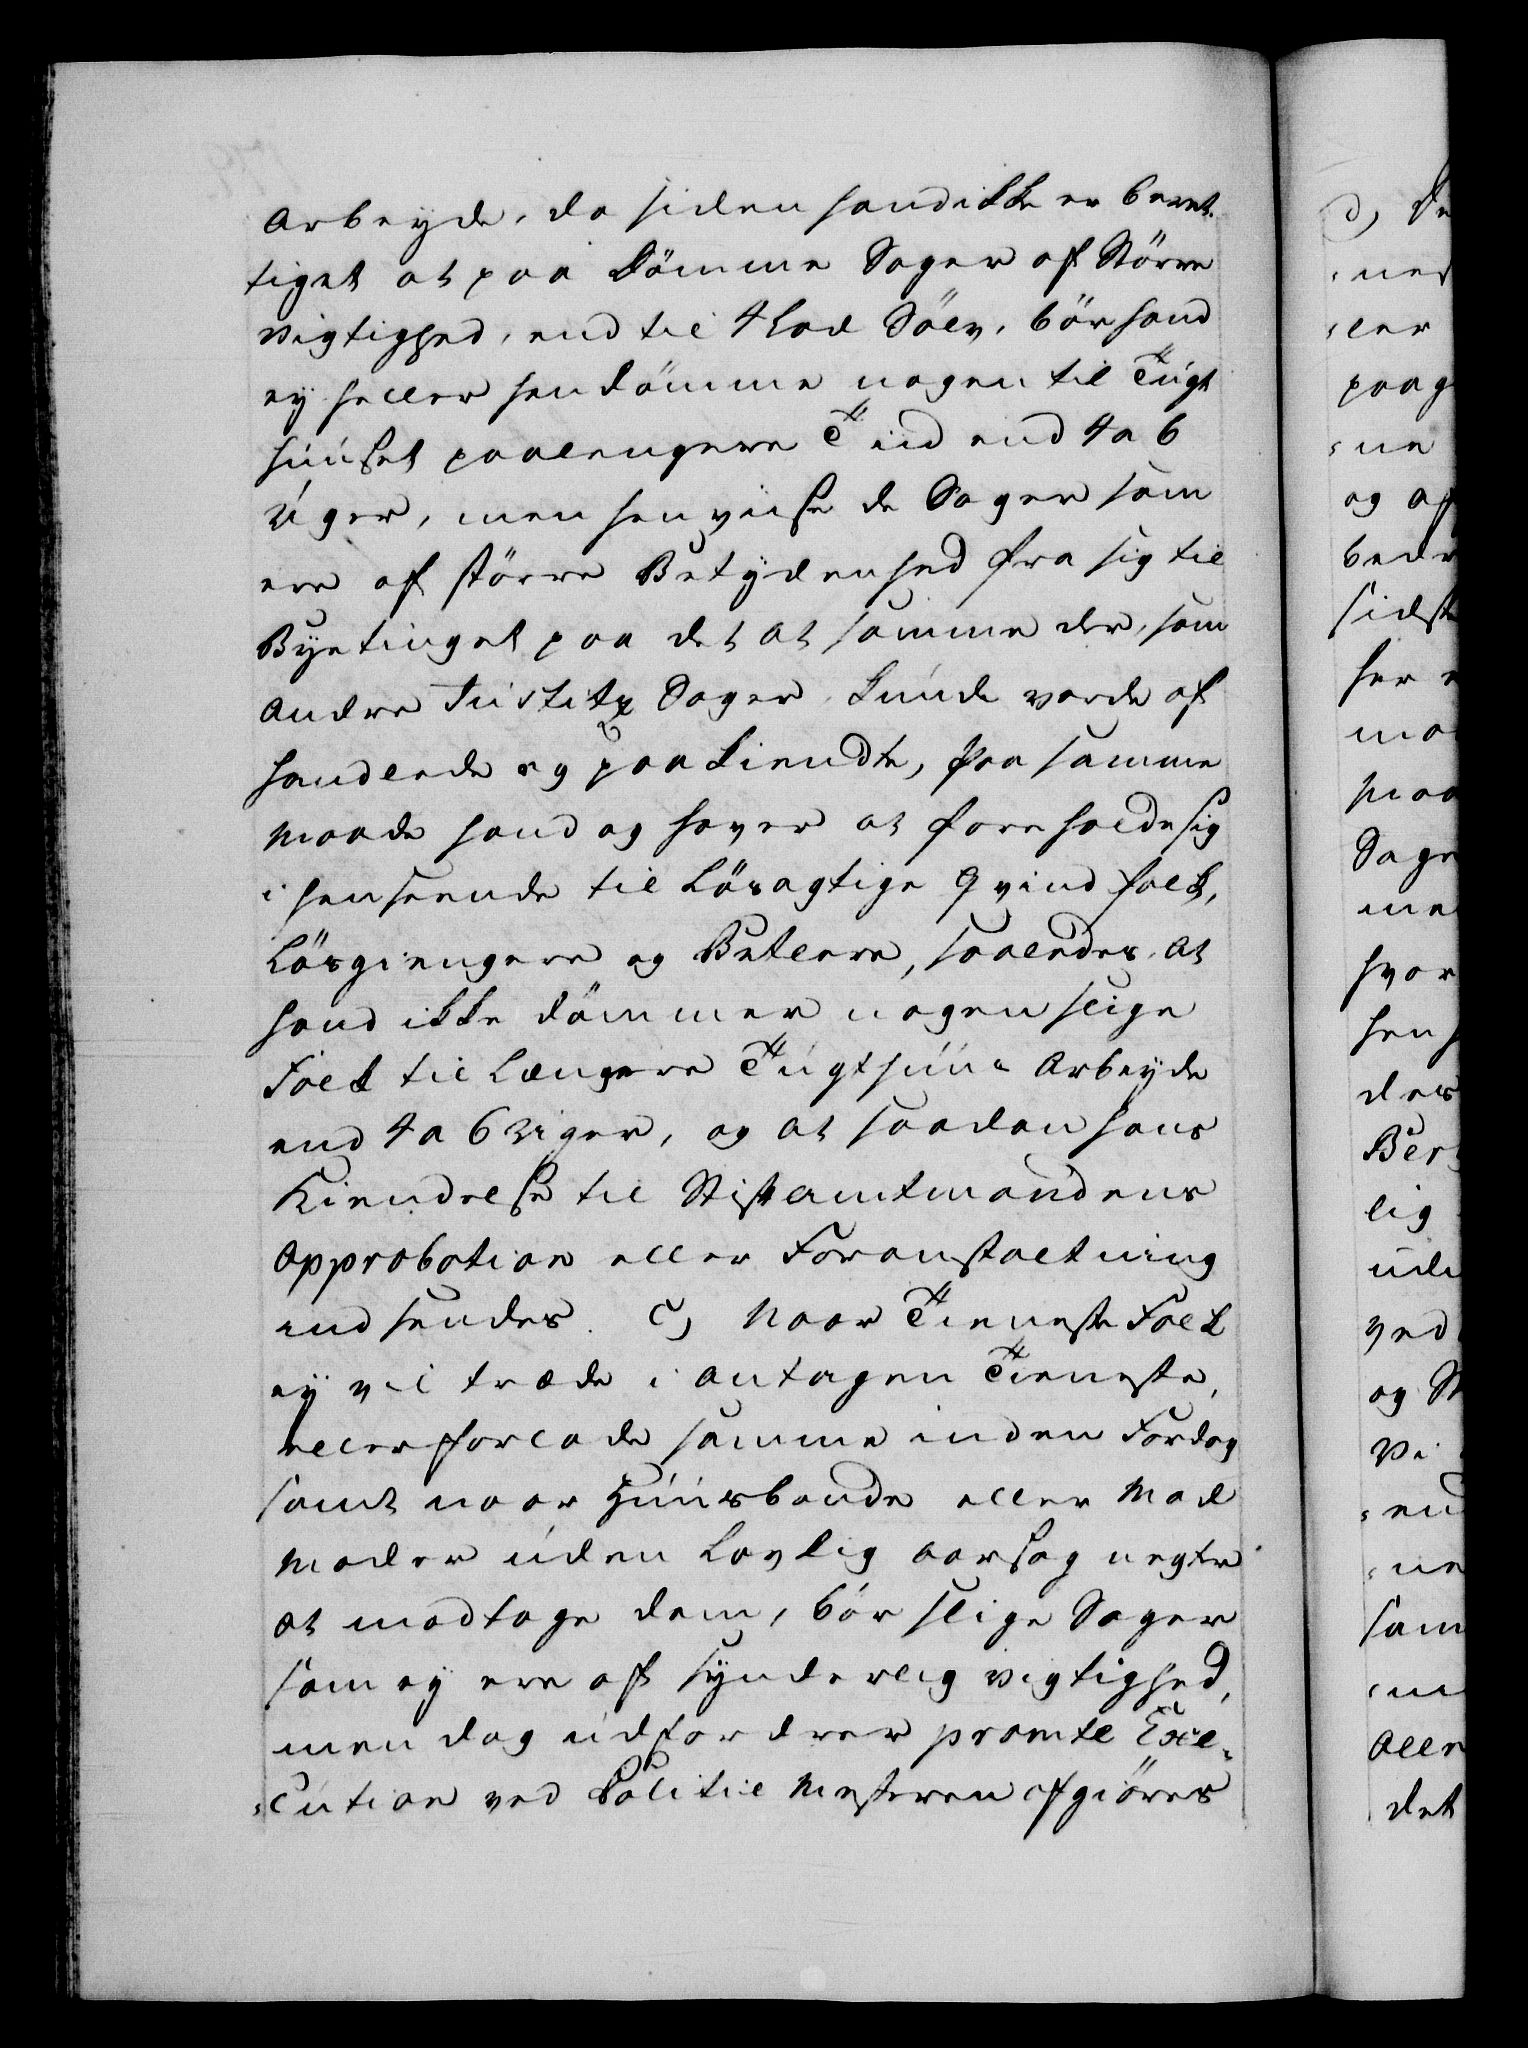 Arbeyde, da siden hand ikke er beret,
tiget at paa dömme Sager af Större
Vigtighed, end til 4 Lod Sölv, bör hand
ey heller hendömme nogen til Tugt
huuset paa lengere Tiid end 4 a 6
Uger, men henviise de Sager som
ere af större Betydenhed fra sig til
Byetinget paa det at samme der, som
andre Justitz Sager kunde vorde af
handlede og paakiendte, Paa samme
Maade hand og haver at foreholde sig
i henseende til Lösagtige Qvindfolk,
Lösgiengere og Betlere, saaledes at
hand ikke dömmer nogen slige
Folk til Længere Tugthuus Arbeyde
end 4 a 6 Uger, og at saadan hans
Kiendelse til Stiftamtmandens
Approbation eller Foranstaltning
indsendes. C, Naar Tieneste Folk
ey vil træde i antagen Tieneste,
eller forlade samme inden Fardag
samt naar Huusbonde eller Mad
Moder uden Lovlig Aarsag negter
at modtage dem, bör slige Sager
som ey ere af synderlig Vigtighed,
men dog udfordrer promte Exe-
=cution ved Politie Mesteren afgiöres